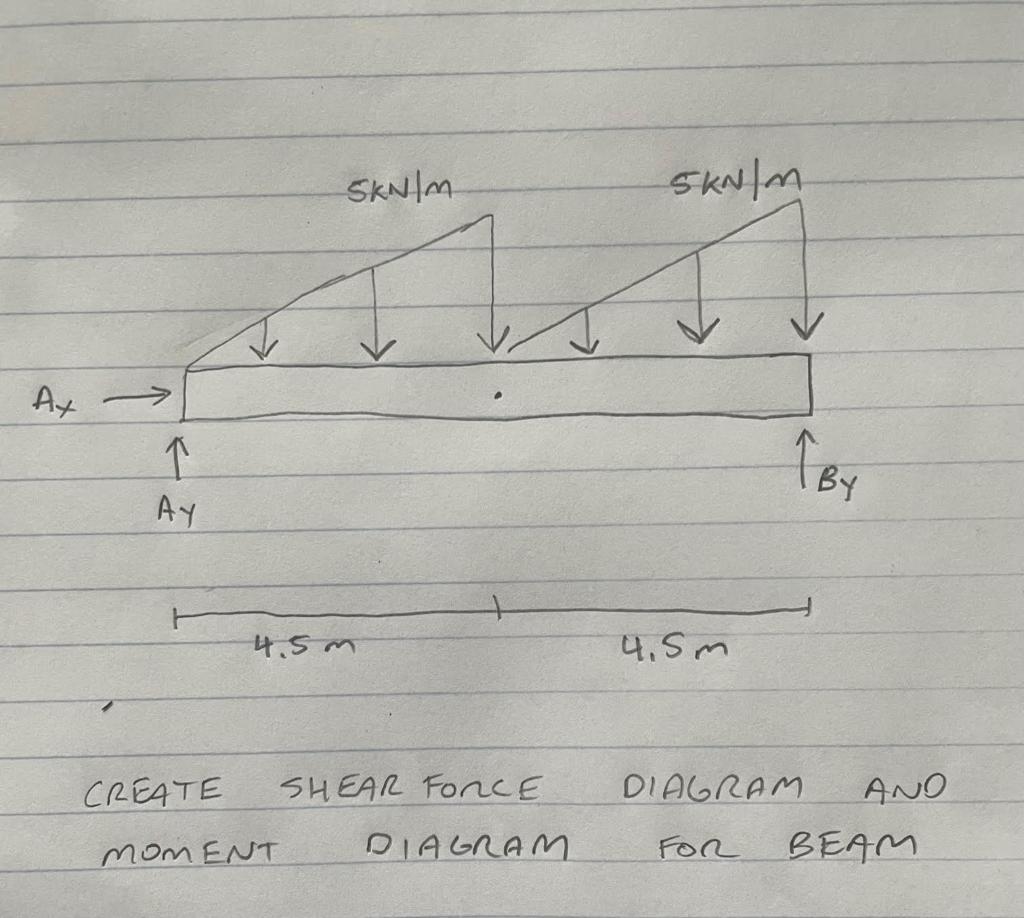 5kN/m 5kN/m
Ax
Ay By
4.5m 4.5m
CREATE SHEAR FORCE DIAGRAM AND
MOMENT DIAGRAM FOR BEAM